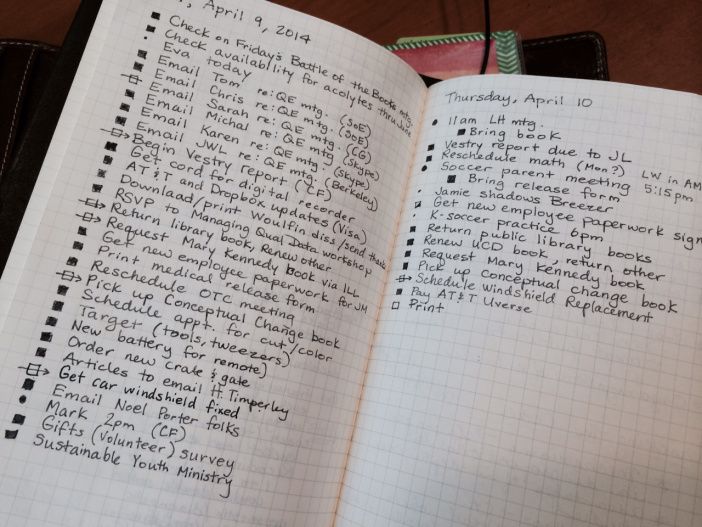 , April 9, 2014
Check on Friday's Battle of the Books mtg.
Check availability for acolytes thru June
Eva today
Email Tom re: QE mtg. (SoE)
Email Chris re: QE mtg. (SoE)
Email Sarah re: QE mtg. (CG)
Email Michal re: QE mtg. (Skype)
Email Karen re: QE mtg. (Skype)
Email JWL re: QE mtg. (Berkeley)
Begin Vestry report (CF)
Get cord for digital recorder
AT&T and Dropbox updates (Visa)
Download/print Woulfin diss/send thanks
RSVP to Managing Qual Data workshop
Return library book, Renew other
Request Mary Kennedy book via ILL
Get new employee paperwork for JM
Print medical release form
Reschedule OTC meeting
Pick up Conceptual Change book
Schedule appt. for cut/color
Target (tools, tweezers)
New battery for remote)
Order new crate & gate
Articles to email H. Timperley
Get car windshield fixed
Email Noel Porter folks
Mark 2pm (CF)
Gifts (Volunteer) survey
Sustainable Youth Ministry
Thursday, April 10
11am LH mtg.
Bring book
Vestry report due to JL
Reschedule math (Mon?) LW in AM
Soccer parent meeting 5:15pm
Bring release form
Jamie shadows Breezer
Get new employee paperwork sign
K-soccer practice 6pm
Return public library books
Renew UCD book, return other
Request Mary Kennedy book
Pick up conceptual change book
Schedule Windshield Replacement
Pay AT&T Uverse
Print